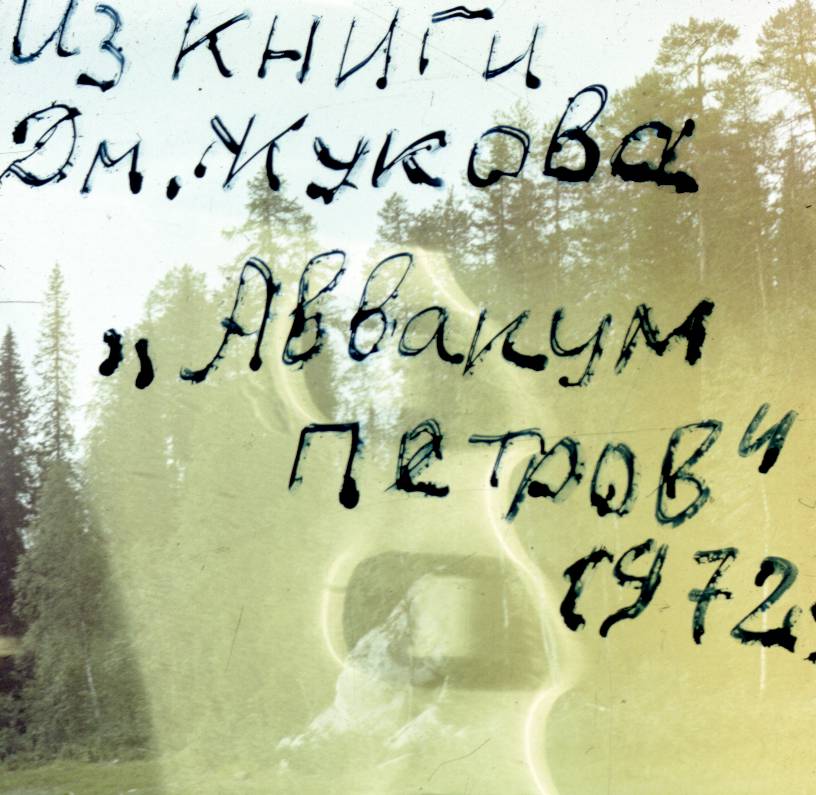 Из книги
Дм. Жукова
„Аввакум
Петров"
1972